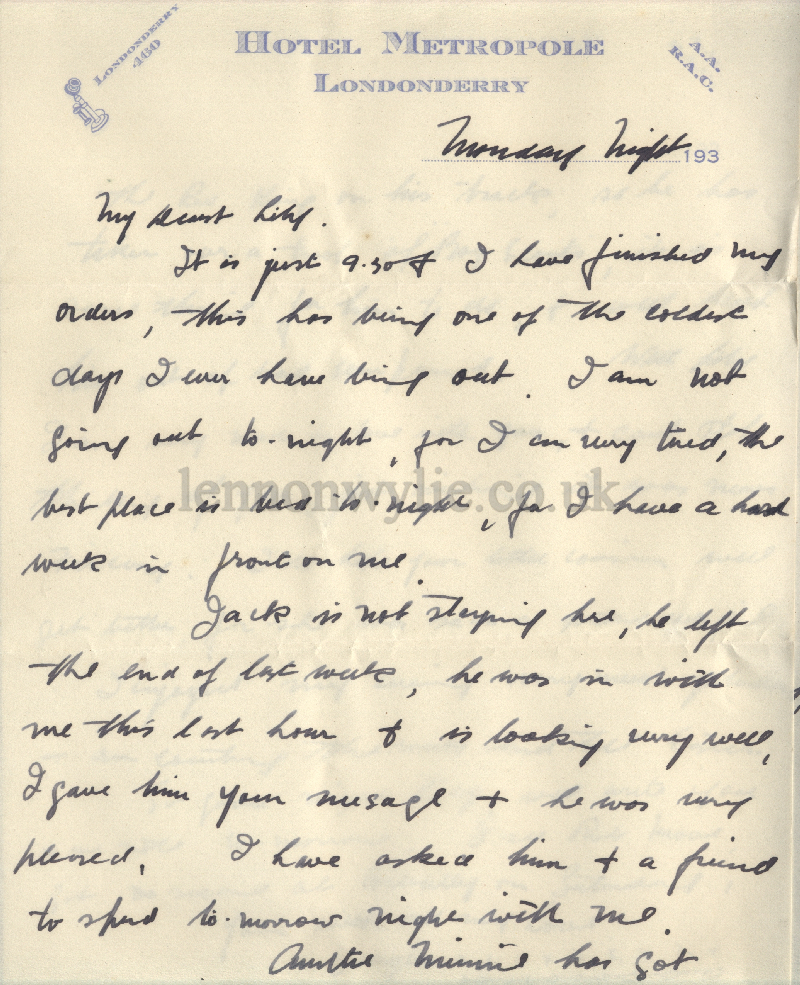 LONDONDERRY
460
HOTEL METROPOLE
LONDONDERRY
A.A.
R.A.C.
Monday Night 193
My dearest Lily.
It is just 9.30 + I have finished my
orders, this has being one of the coldest
days I ever have being out. I am not
going out to-night, for I am very tired, the
best place is bed to-night, for I have a hard
week in front on me.
Jack is not staying here, he left
the end of last week, he was in with
me this last hour + is looking very well,
I gave him your message + he was very
pleased. I have asked him + a friend
to spend to-morrow night with me.
Auntie Minnie has got
lennonwylie.co.uk